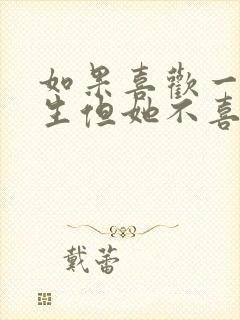 如果喜歡一
生但她不喜
戴蕾